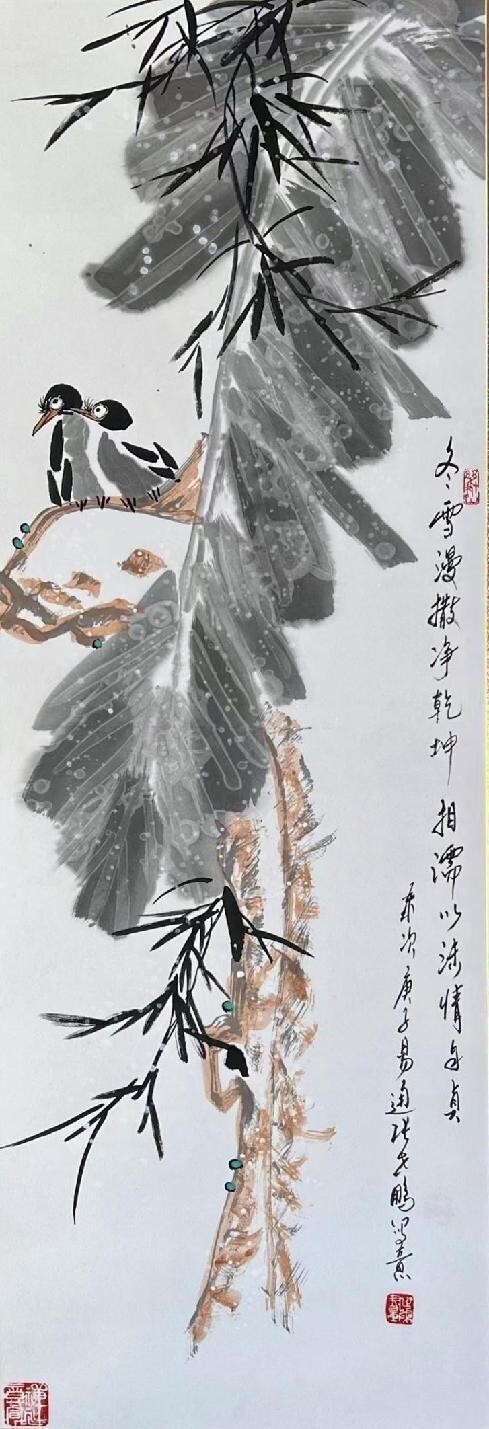 冬雪漫撒净乾坤 相濡以沫情自贞
岁次庚子易通张世鹏写意